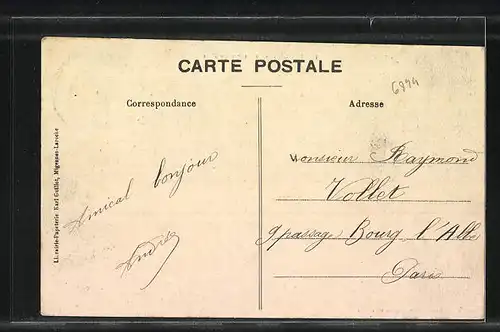 CARTE POSTALE
Correspondance
Adresse
6894
Librairie-Papeterie Karl Guillot, Migennes-Laroche
Amical bonjour
André
Monsieur Raymond
Vollet
9 passage Bourg l'Abbé
Paris